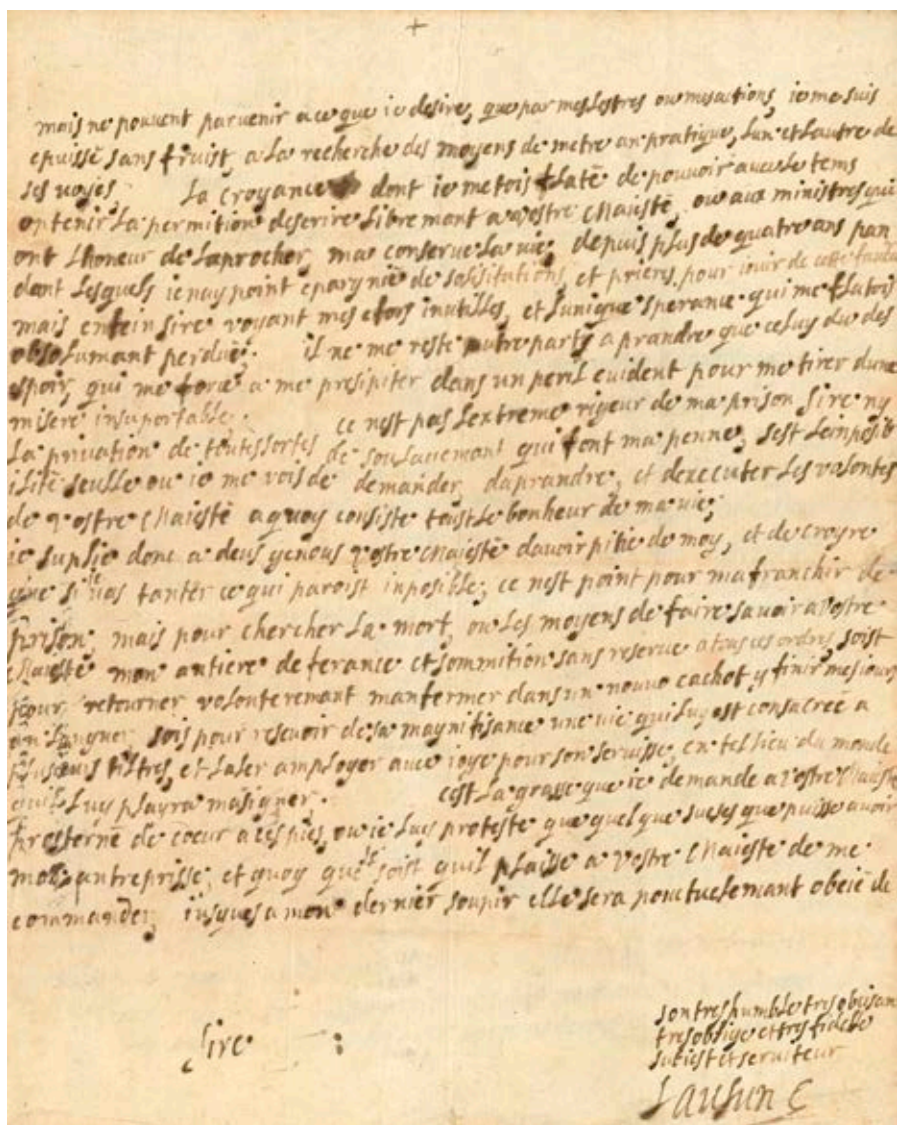 mais ne pouvent parvenir a ce que ie desire, que par mes lestres ou mes actions, ie me suis
epuissé sans fruist, a la recherche des moyens de metre an pratique, lun et lautre de
ses voyes, La croyance dont ie metois flaté de pouvoir avec le tems
ontenir la permition descrire librement a vostre Maiesté, ou aux ministres qui
ont lhoneur de laprocher, ma conserve la vie, depuis plus de quatre ans pan
dant lesquels ie nay point epargnié de solisitations, et prieres, pour iouir de cette
mais enfein sire voyant mes efors inutilles, et lunique sperance qui me flatois
obsolumant perdue, il ne me reste autre party a prandre que celuy du des
espoir, qui me force a me presipiter dans un peril evident pour me tirer dune
misere insuportable, ce nest pas lextreme rigeur de ma prison sire ny
la privation de toutes sortes de soulavemant qui font ma penne, sest linposib
ilité seulle ou ie me vois de demander, daprandre, et dexecuter les volontes
de vostre Maiesté a quoy consiste toist le bonheur de ma vie;
ie suplie donc a deus genous vostre Maiesté davoir pitie de moy, et de croyre
que si ie vas tanter ce qui paroist inposible, ce nest point pour mafranchir de
prison, mais pour chercher la mort, ou les moyens de faire savoir a vostre
Maiesté mon antiere deferance et sommition sans reserve a tous ces ordres, soist
pour retourner volonteremant manfermer dans un nouvo cachot y finir mes iours
an languer sois pour resevoir de sa magnifisance une vie qui luy est consacreé a
plusieurs tiltres, et laler amployer avec ioye pour son servisse, en tel lieu du monde
quil luy playra masigner. cest la grasse que ie demande a vostre Maiesté
prosterné de coeur a ces piés, ou ie luy proteste que quelque sucses que puisse avoir
mon antreprisse, et quoy que se soist quil plaisse a vostre Maiesté de me
commander, iusques a mon dernier soupir elle sera ponctuelemant obeié de
Sire
son tres humble tres obeisan
tres oblige et tres fidelle
suiest et serviteur
Lausun